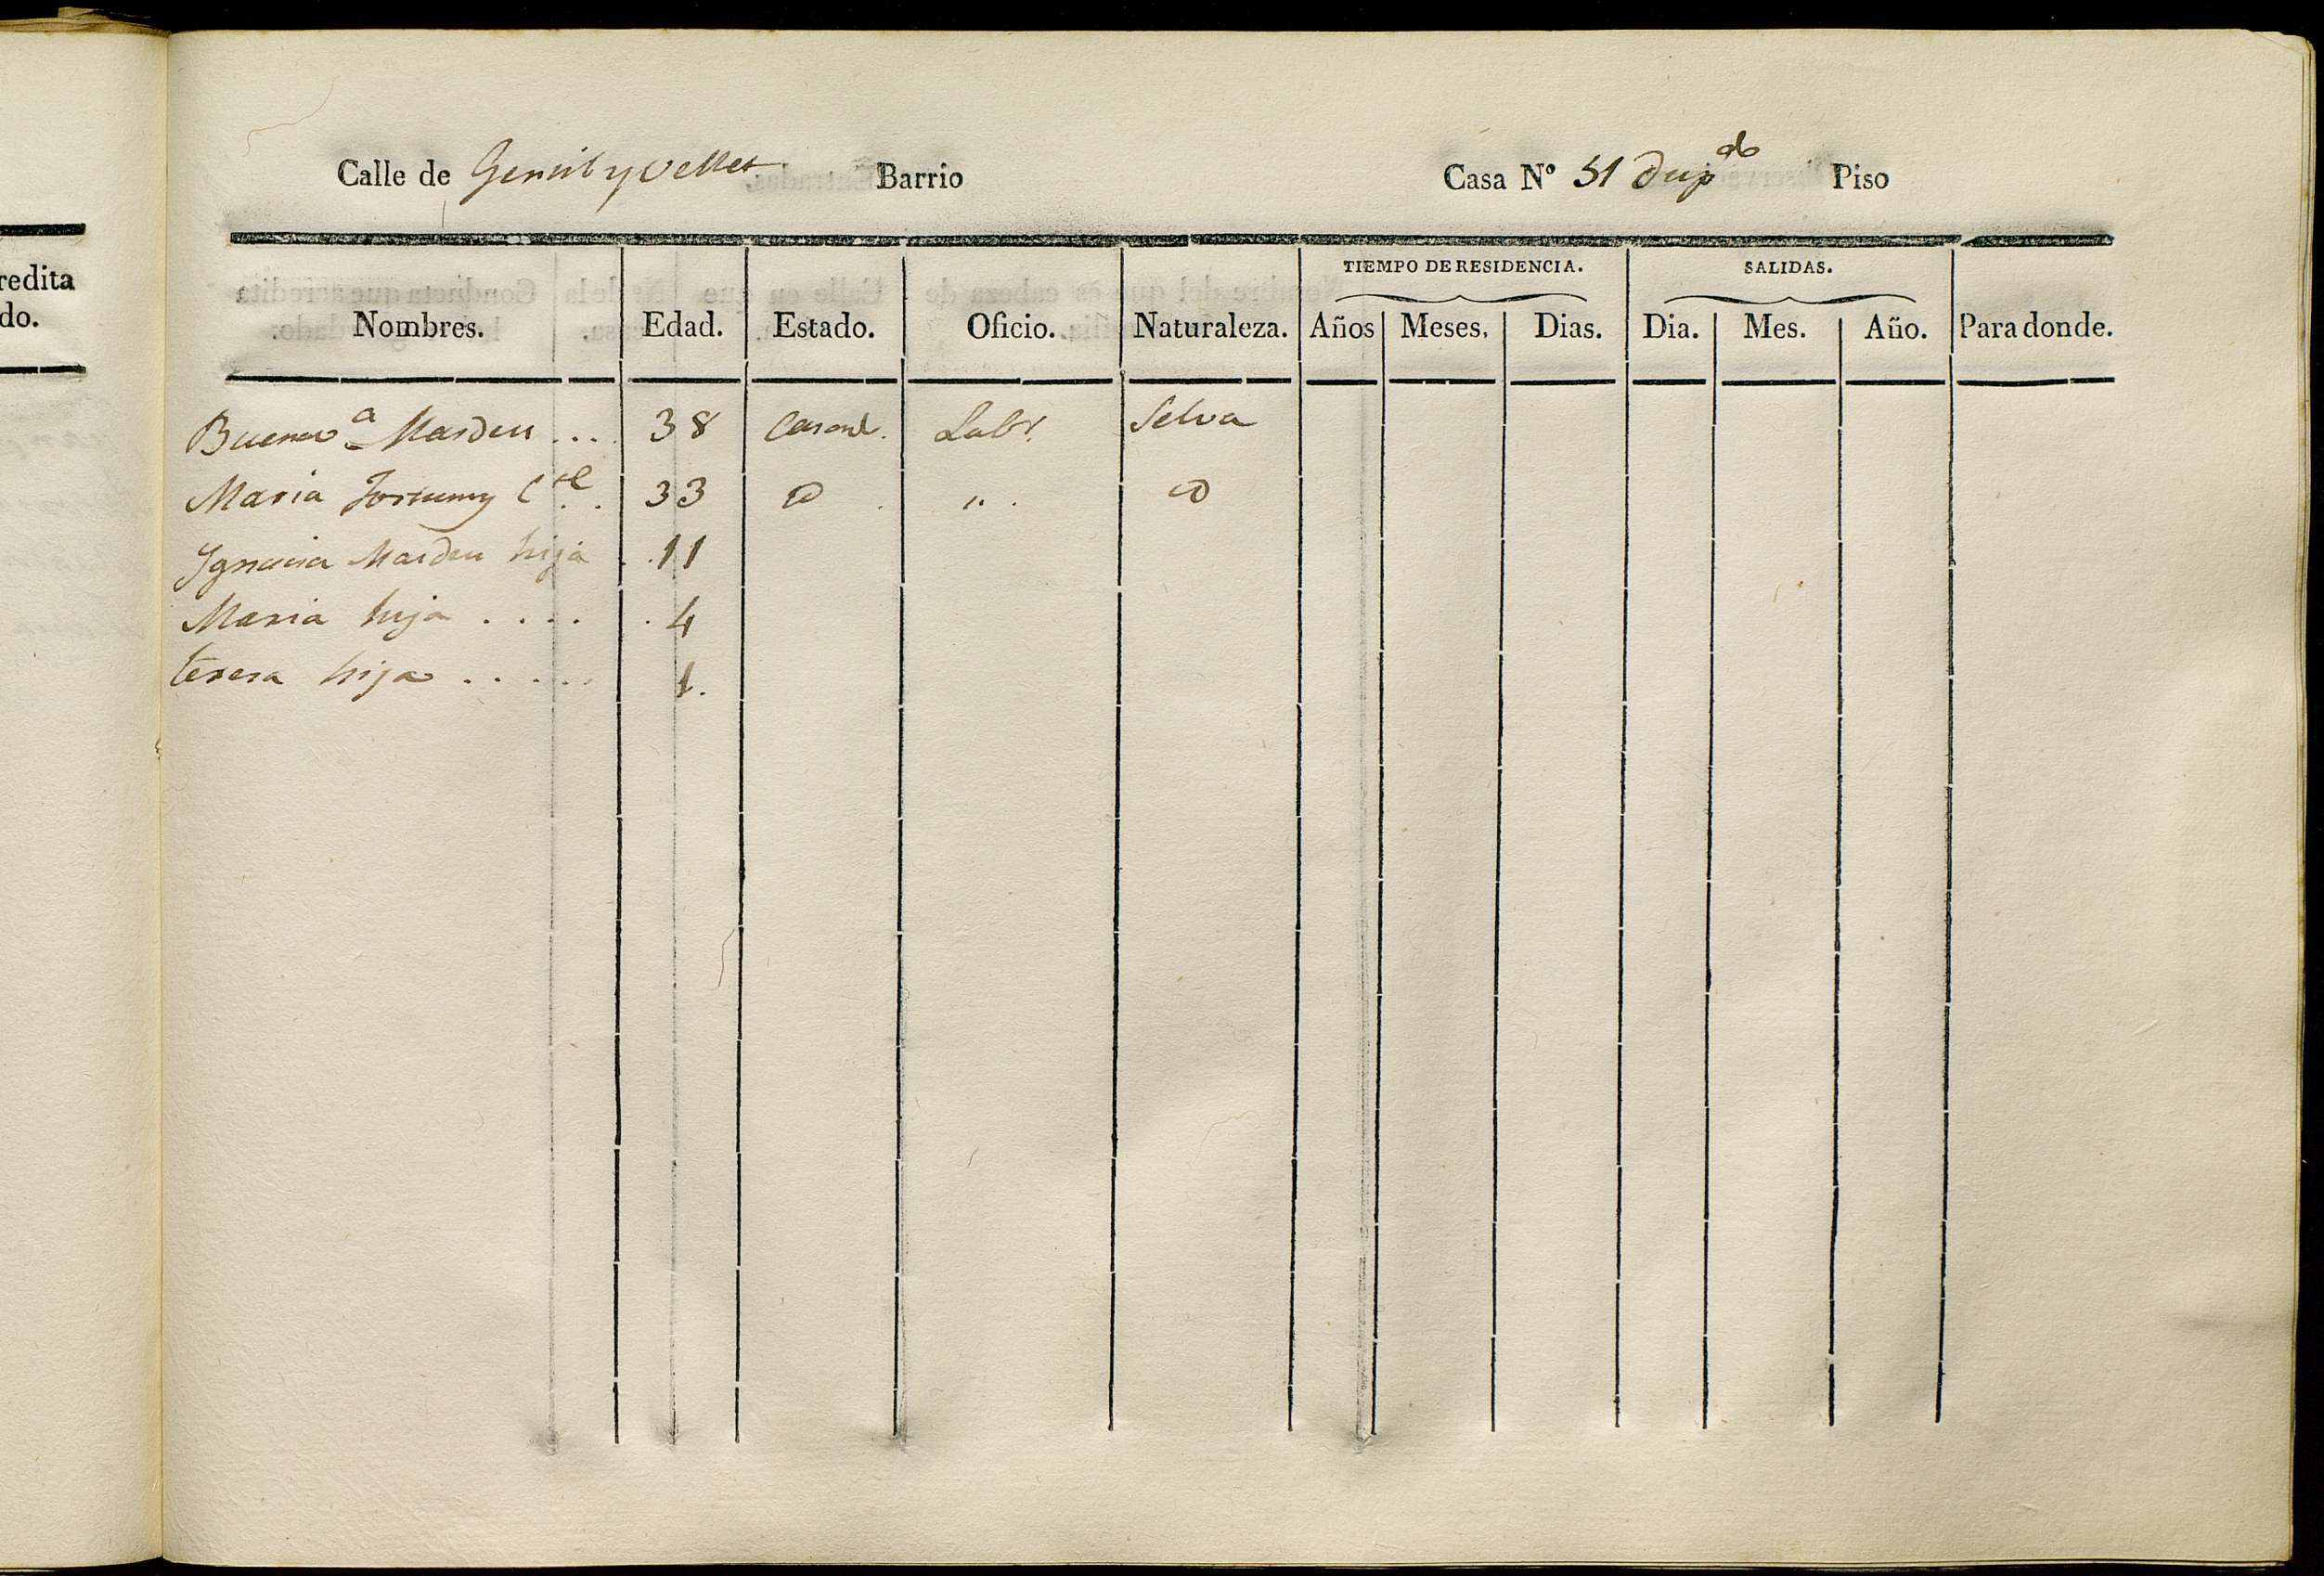 redita
do.
Calle de Barrio Casa Nº 51 Dup.do Piso
TIEMPO DE RESIDENCIA. SALIDAS.
Nombres. Edad. Estado. Oficio. Naturaleza. Años Meses. Dias. Dia. Mes. Año. Para donde.
Buenav.a ... 38 Casad. Labr. Selva
Maria Fortuny C.te .. 33 D . " . D
Ignacia hija . 11
Maria hija .... . 4
teresa hija ..... 1.